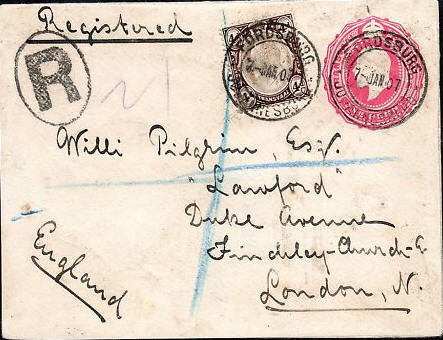 Registered
R
FORDSBURG
7-JAN.07
TRANSVAAL
FORDSBURG
7-JAN.07
Willi Pidgrim, Esq.
"Lawford"
Duke Avenue
Finchley-Church-E
London, N.
England